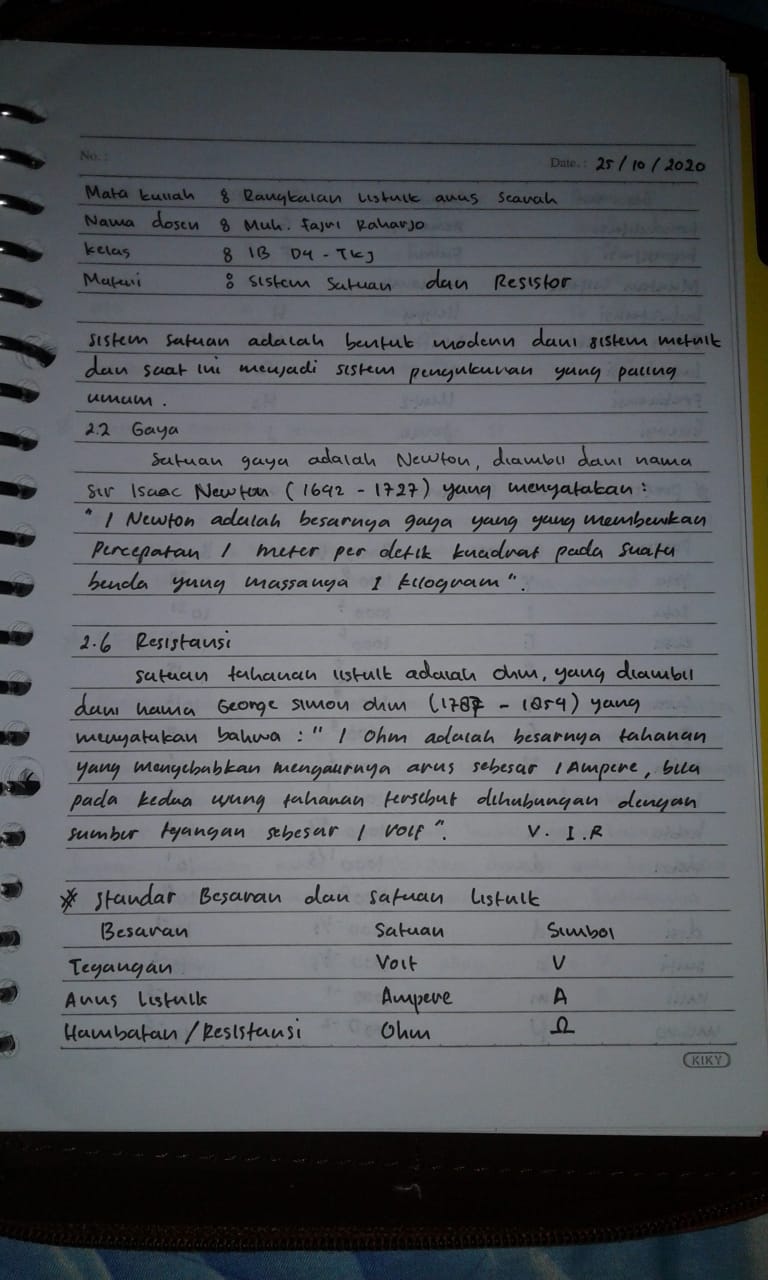 No. :
Date. : 25/10/2020
Mata kuliah : Rangkaian listrik arus searah
Nama dosen : Muh. Fajri Raharjo
kelas : 1B D4 - TKJ
Materi : Sistem Satuan dan Resistor
sistem satuan adalah bentuk modern dari sistem metrik
dan saat ini menjadi sistem pengukuran yang paling
umum.
2.2 Gaya
Satuan gaya adalah Newton, diambil dari nama
Sir Isaac Newton (1642 - 1727) yang menyatakan :
" 1 Newton adalah besarnya gaya yang yang memberikan
Percepatan 1 meter per detik kuadrat pada suatu
benda yang massanya 1 kilogram".
2.6 Resistansi
satuan tahanan listrik adalah ohm, yang diambil
dari nama George simon ohm (1787 - 1854) yang
menyatakan bahwa : " 1 Ohm adalah besarnya tahanan
yang menyebabkan mengalirnya arus sebesar 1 Ampere, bila
pada kedua ujung tahanan tersebut dihubungan dengan
sumber tegangan sebesar 1 volt". V. I.R
* standar Besaran dan satuan listrik
Besaran Satuan Simbol
Tegangan Volt V
Arus listrik Ampere A
Hambatan/Resistansi Ohm Ω
KIKY